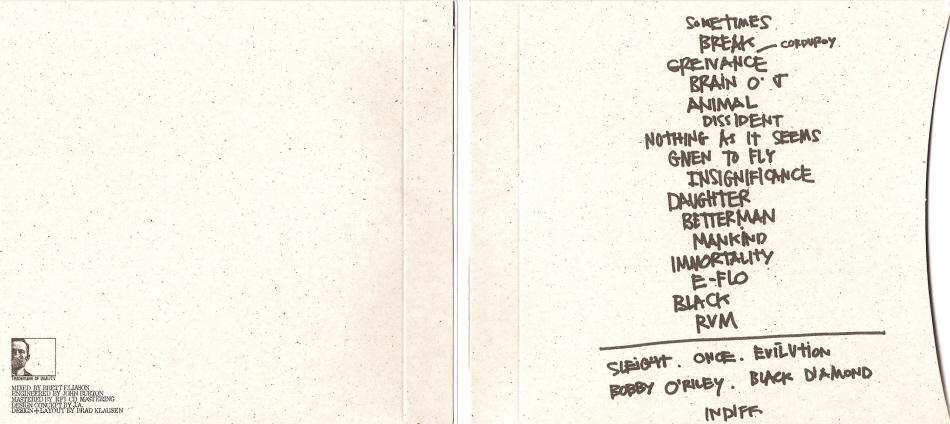 TRADEMARK OF QUALITY
MIXED BY BRETT ELIASON
ENGINEERED BY JOHN BURTON
MASTERED BY RFI CD MASTERING
DESIGN CONCEPT BY J.A.
DESIGN + LAYOUT BY BRAD KLAUSEN
SOMETIMES
BREAK — CORDUROY
GREIVANCE
BRAIN O' J
ANIMAL
DISSIDENT
NOTHING AS IT SEEMS
GIVEN TO FLY
INSIGNIFICANCE
DAUGHTER
BETTERMAN
MANKIND
IMMORTALITY
E-FLO
BLACK
RVM
SLEIGHT . ONCE . EVILUTION
BOBBY O'RILEY . BLACK DIAMOND
INDIFF.